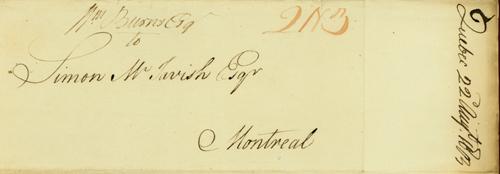 Wm Burns Esqr
to
Simon McTavish Esqr
Montreal
2N3
Quebec 22d Augt. 1803